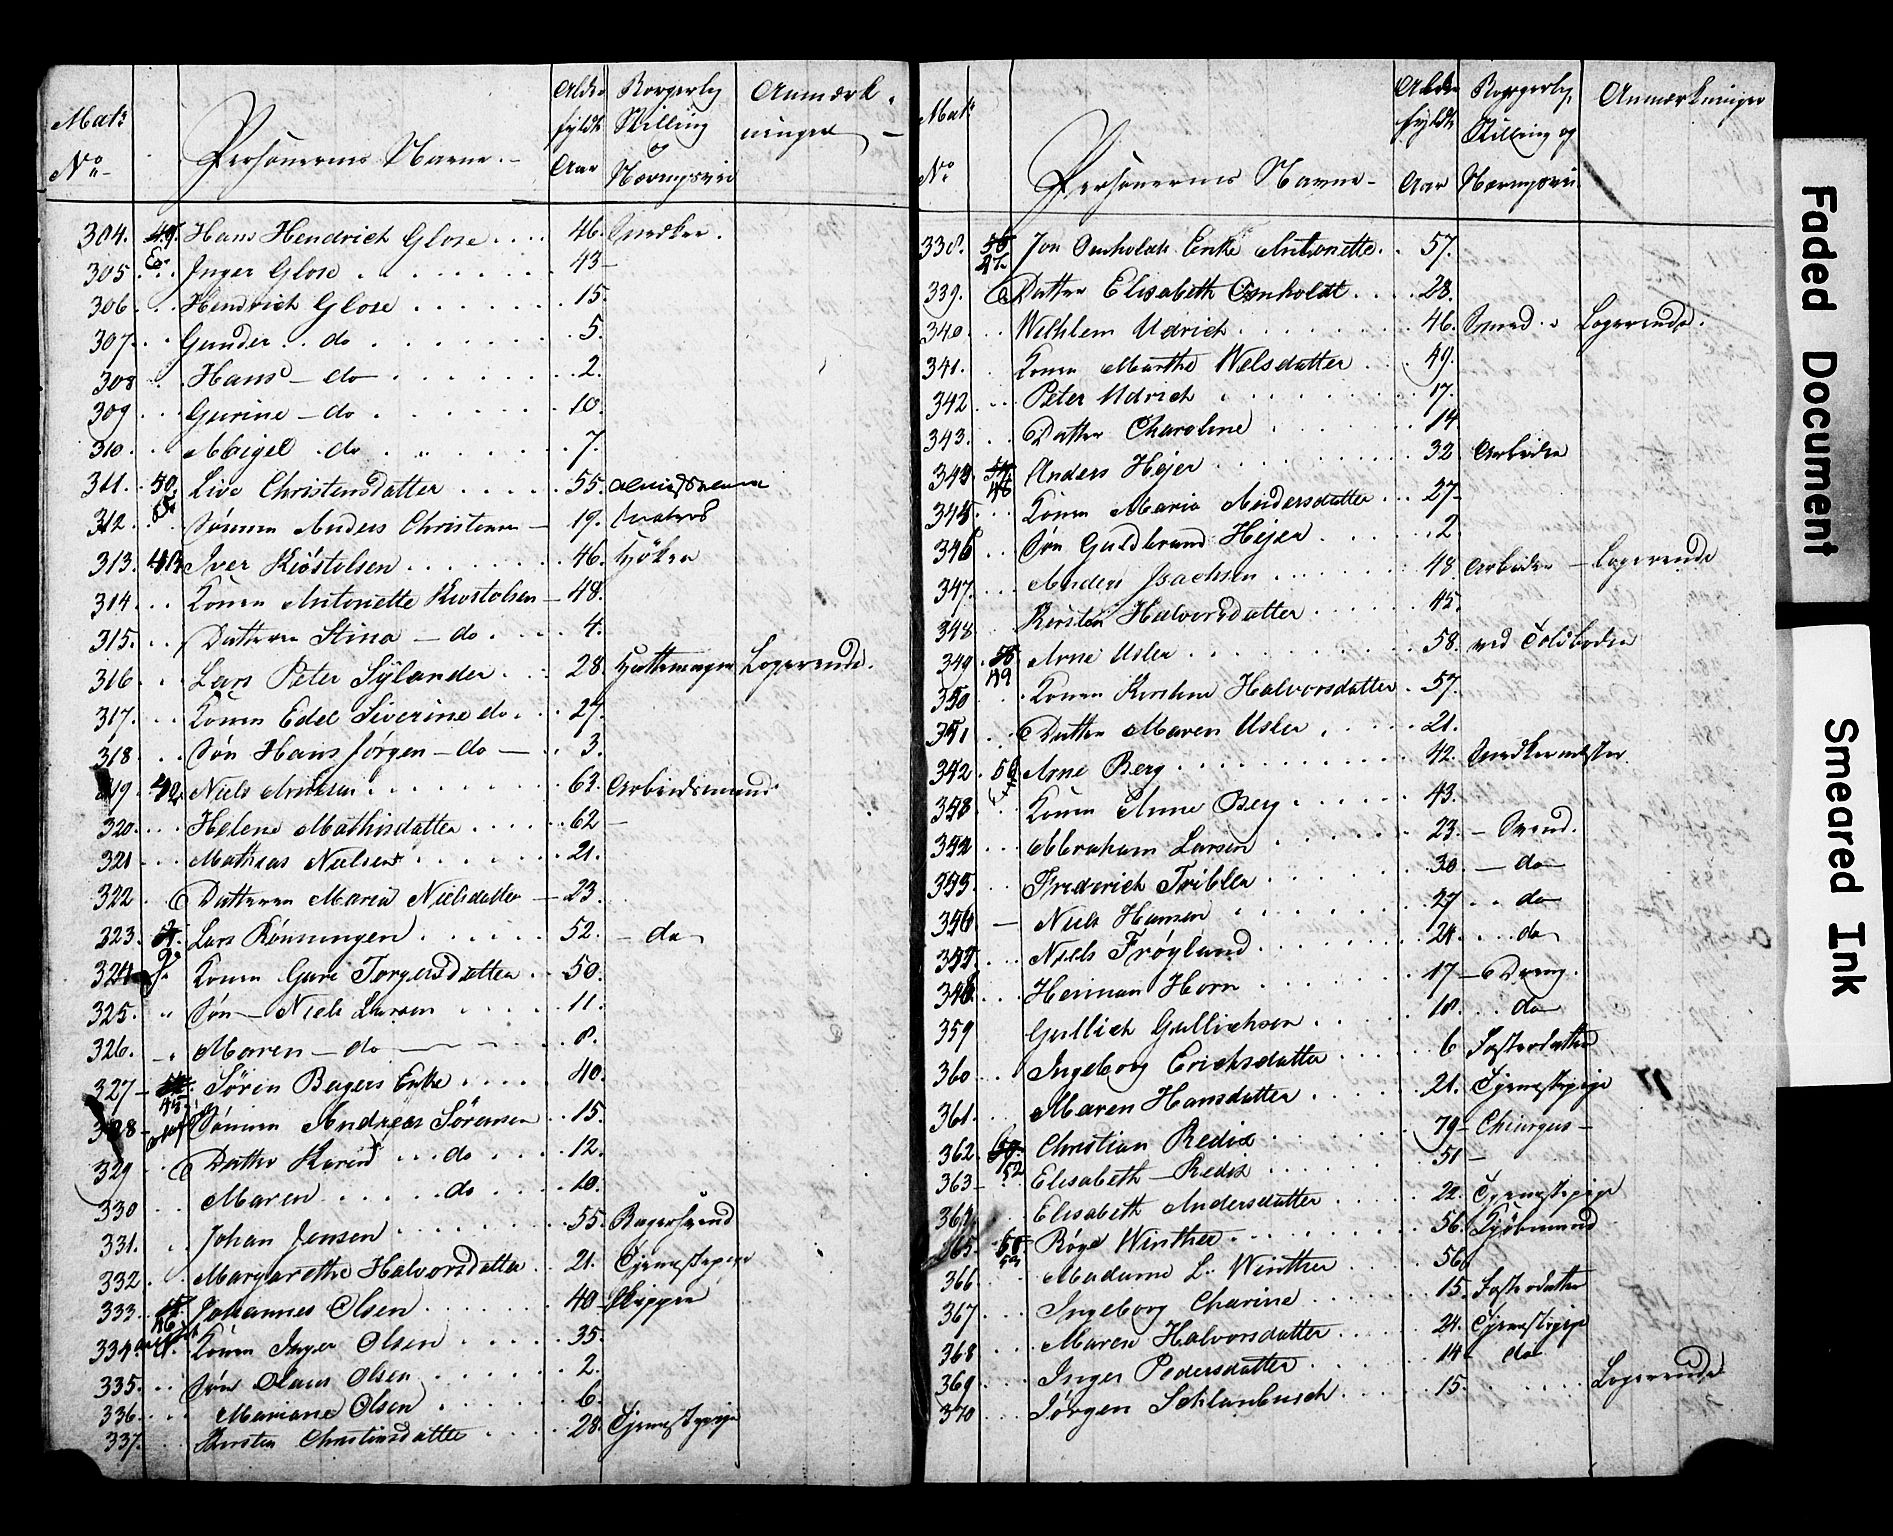 Matr No
Personernes Navne
Alder fyldte Aar
Borgerlig Stilling og Næringsvei
Anmærkninger
304. 49. Hans Hendrich Glose 46. Snedker.
305. Inger Glose 43
306. Hendrich Glose 15.
307. Gunder do 5.
308. Hans do 2.
309. Gurine do 10.
310. Abigel do 7.
311. 50. Live Christensdatter 55.
312. Sønnen Anders Christensen 19.
313. 41. Iver Kiöstolsen 46. Høker
314. Konen Antonette Kiostolsen 48.
315. Datteren Stina do. 4.
316. Lars Peter Sylander 28. Hattemager Logerende.
317. Konen Edel Siverine do. 27.
318. Søn Hans Jørgen do 3.
319. 42. Niels 63. Arbeidsmand
320. Helene Mathisdatter 62
321 Mathias Nielsen 21.
322 Datteren Maria Nielsdatter 23.
323. Lars Rønningen 52. do
324 Konen Guri Torgersdatter 50.
325. Søn Niels Larsen 11.
326. Maren do 8.
327 Søren Bagers Enke 40.
328 Sønnen Andreas Sörensen 15.
329 Datter Karen do 12.
330 Maren do 10.
331. Johan Jensen 55. Bagersvend
332. Margarethe Halvorsdatter 21. Tjenestepige
333. Johannes Olsen 40 Skipper
334 Konen Inger Olsen 35.
335. Søn Olaus Olsen 2.
336. Mariane Olsen 6.
337. Kirsten Christensdatter 28. Tjenestepige
Matr No
Personernes Navne
Alder fyldte Aar
Borgerlig Stilling og Næringsvei
Anmærkninger
338. Jon Omholdt Enke Antonette 57.
339. Datter Elisabeth Omholdt 28.
340. Wilhlem Udrich 46. Smed Logerende.
341. Konen Marthe Nielsdatter 49.
342 Peter Udrich 17.
343. Datter Charoline 14
344 Anders Hejer 32 Arbeider
345 Konen Maria Andersdatter 27
346 Søn Guldbrand Hejer 2
347. Anders Isachsen 48 Arbeider Logerende
348 Kirsten Halvorsdatter 45.
349 49 Arne Usler 58. ved Toldboden
350 Konen Kirstine Halvorsdatter 57.
351 Datter Maren Usler 21.
352 Arne Berg 42. Snedkermester
353 Konen Anne Berg 43.
354 Abraham Larsen 23. Svend.
355. Frederich Tribler 30 do
356 Niels Hansen 27 do
357 Niels Frøyland 24. do
358 Herman Horn 17 Dreng.
359 Gullich Gullichsen 18. do
360 Ingeborg Erichsdatter 6 Fosterdatter
361. Maren Hansdatter 21. Tjenestepige
362 Christian Redix 79 Chirurgus
363 52 Elisabeth Redix 51
364 Elisabeth Andersdatter 22. Tjenestepige
365 Winther 56. Kjöbmand
366 Madame L. Winther 56
367 Ingeborg Charine 15. Fosterdatter
368 Maren Halvorsdatter 24. Tjenestepige
369 Inger Pedersdatter 14 do
370 Jørgen Schlanbusch 15. Logerende
Faded Document
Smeared Ink